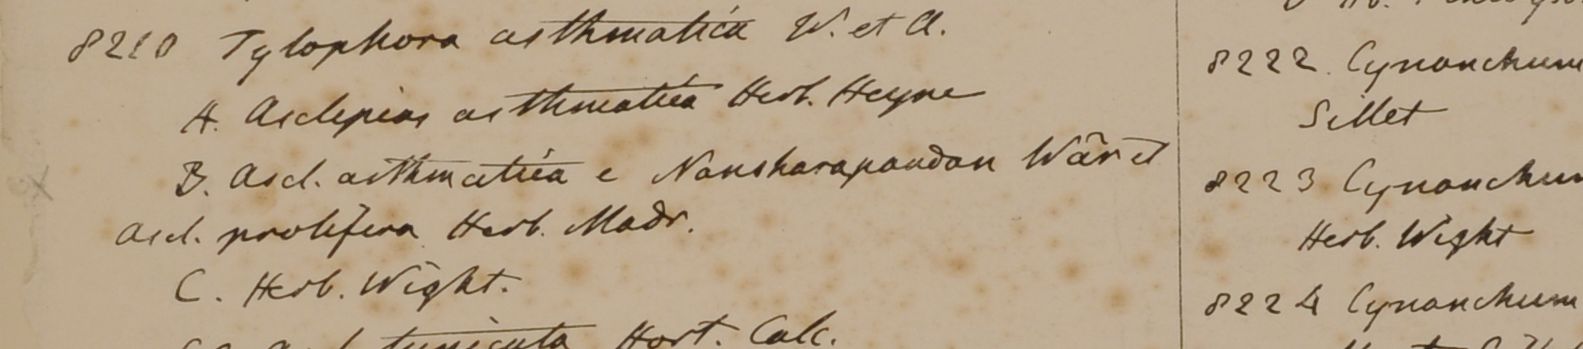 8210 Tylophora asthmatica W. et A.
A. Asclepias asthmatica Herb. Heyne
B. Ascl. asthmatica e
Ascl. prolifera Herb. Madr.
C. Herb. Wight.
tunicata Hort. Calc.
8222 Cynanchum
Sillet
8223 Cynanchum
Herb. Wight
8224 Cynanchum